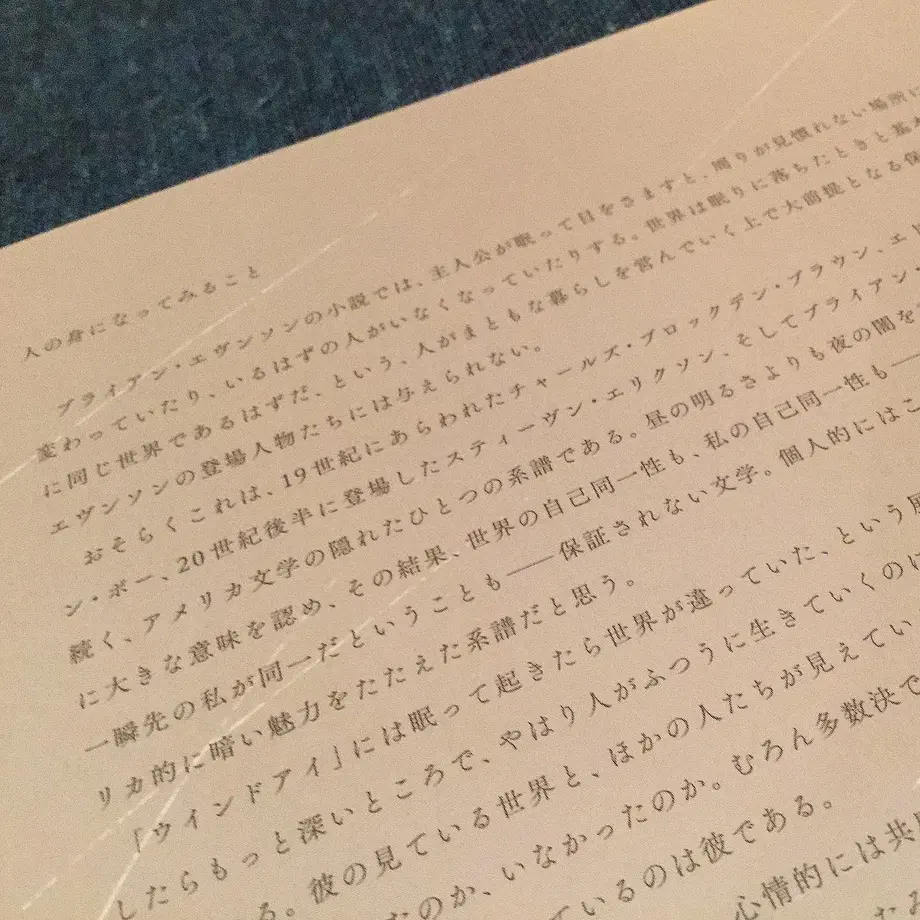 人の身になってみること
ブライアン・エヴンソンの小説では、主人公が眠って目をさますと、周りが見慣れない場所に
変わっていたり、いるはずの人がいなくなっていたりする。世界は眠りに落ちたときと基
に同じ世界であるはずだ、という、人がまともな暮らしを営んでいく上で大前提となる保
エヴンソンの登場人物たちには与えられない。
おそらくこれは、19世紀にあらわれたチャールズ・ブロックデン・ブラウン、エ
ン・ポー、20世紀後半に登場したスティーヴン・エリクソン、そしてブライアン・
続く、アメリカ文学の隠れたひとつの系譜である。昼の明るさよりも夜の闇を
に大きな意味を認め、その結果、世界の自己同一性も、私の自己同一性も――
一瞬先の私が同一だということも――保証されない文学。個人的にはこ
リカ的に暗い魅力をたたえた系譜だと思う。
「ウインドアイ」には眠って起きたら世界が違っていた、という展
したらもっと深いところで、やはり人がふつうに生きていくのに
る。彼の見ている世界と、ほかの人たちが見えてい
なのか、いなかったのか。むろん多数決で
ているのは彼である。
心情的には共